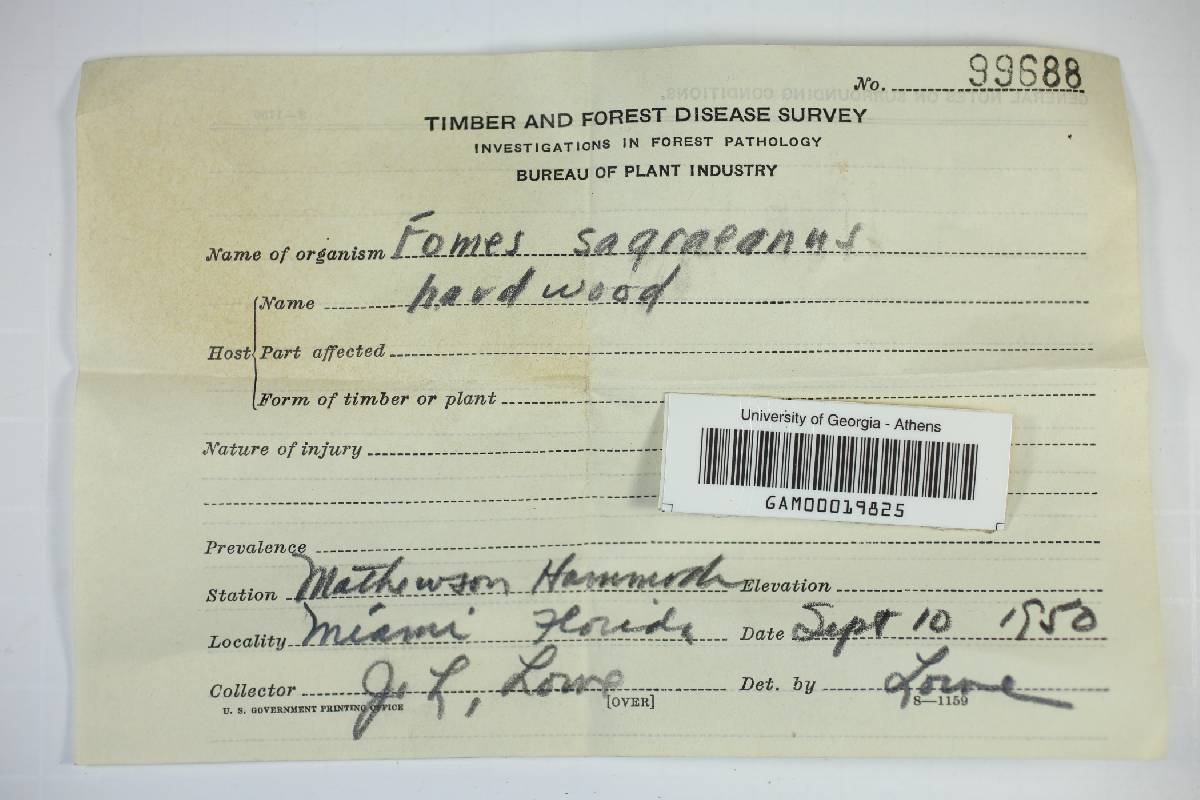 No. 99688
TIMBER AND FOREST DISEASE SURVEY
INVESTIGATIONS IN FOREST PATHOLOGY
BUREAU OF PLANT INDUSTRY
Name of organism Fomes sagraeanus
Host Name hardwood
Part affected
Form of timber or plant
University of Georgia - Athens
GAM00019825
Nature of injury
Prevalence
Station Mathewson Hammock Elevation
Locality Miami Florida Date Sept 10 1950
Collector J. L. Lowe Det. by Lowe
U. S. GOVERNMENT PRINTING OFFICE [OVER] 8—1159
GENERAL NOTES ON SURROUNDING CONDITIONS.